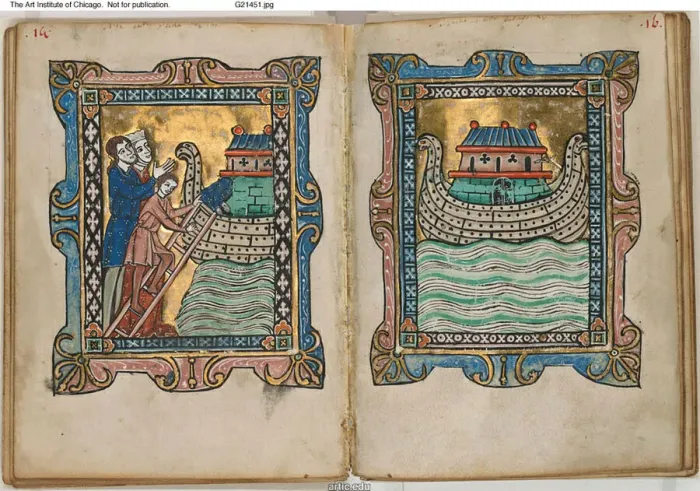 The Art Institute of Chicago. Not for publication. G21451.jpg
16.
artic.edu